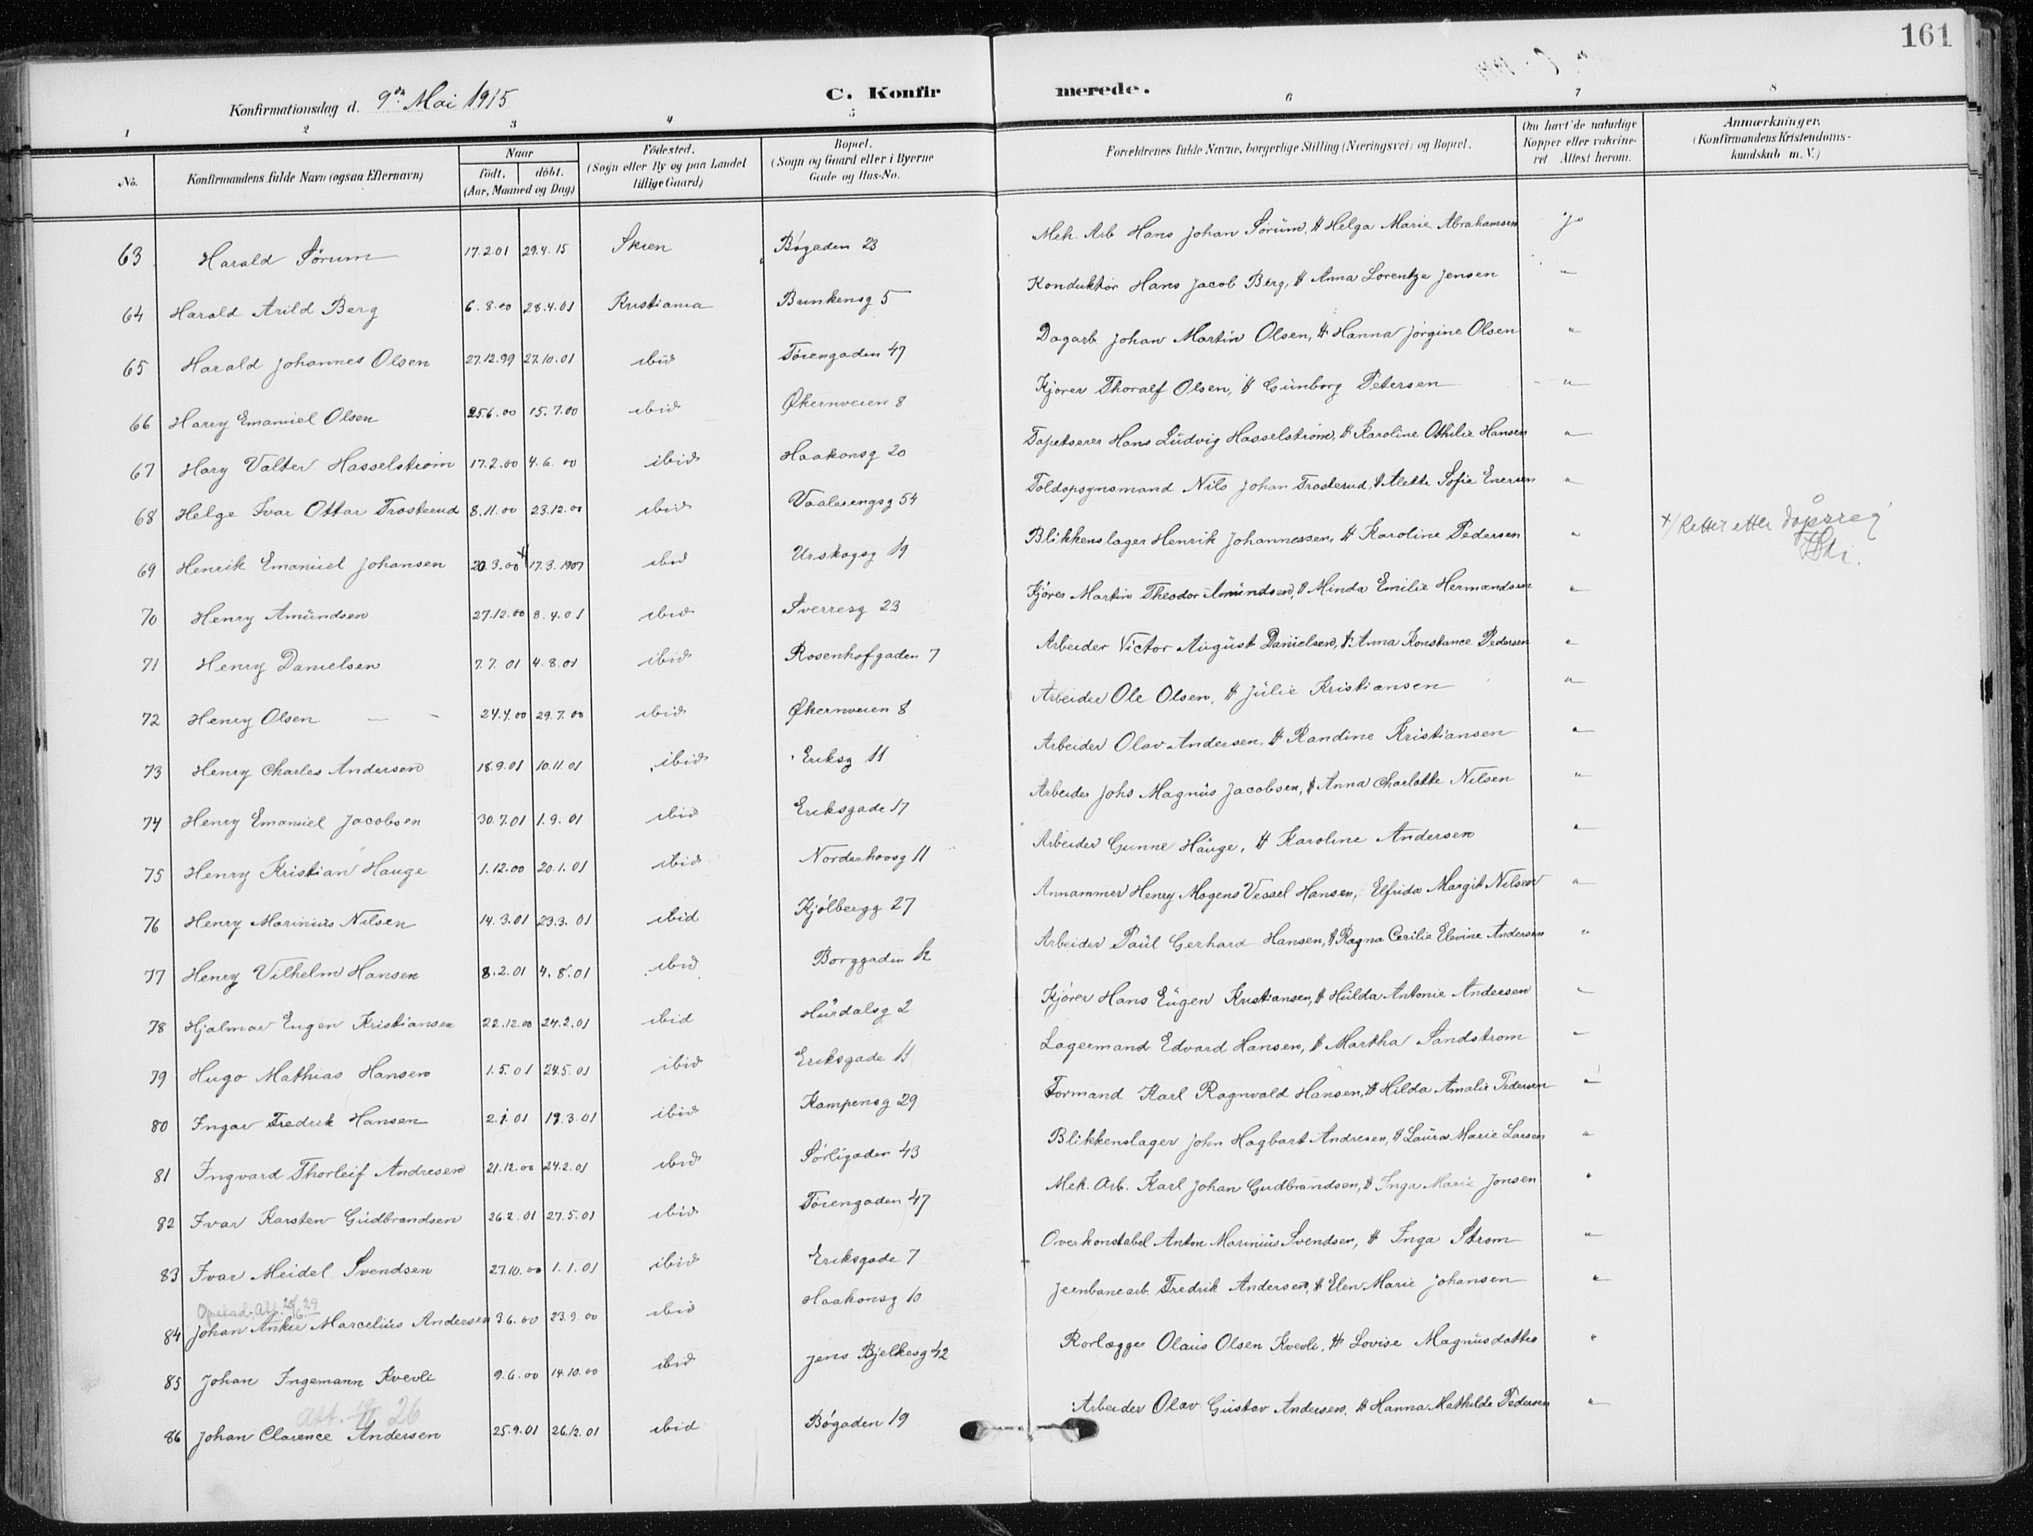 161
Konfirmationsdag d. 9de Mai 1915
C. Konfirmerede.
1 2 3 4 5 6 7 8
No. Konfirmandens fulde Navn (ogsaa Efternavn) Naar født. døbt. (Aar, Maaned og Dag) Fødested. (Sogn eller By og paa Landet tillige Gaard) Bopæl. (Sogn og Gaard eller i Byerne Gade og Hus-No. Forældrenes fulde Navne, borgerlige Stilling (Næringsvei) og Bopæl. Om havt de naturlige Kopper eller vakcineret Attest herom. Anmærkninger. (Konfirmandens Kristendomskundskab m. V.)
63 Harald Sørum 17.2.01 29.4.15 Skien Bøgaden 23 Mek. Arb Hans Johan Sørum, # Helga Marie Abrahamsen Ja
64 Harald Arild Berg 6.8.00 28.4.01 Kristiania Brinkensg 5 Konduktør Hans Jacob Berg, # Anna Lorentze Jensen "
65 Harald Johannes Olsen 27.12.99 27.10.01 ibid Tøiengaden 47 Dagarb Johan Martin Olsen, # Hanna Jørgine Olsen "
66 Harry Emanuel Olsen 25.6.00 15.7.00 ibid Økernveien 8 Kjører Thoralf Olsen, # Gunborg Petersen "
67 Hary Valter Hasselstrøm 17.2.00 4.6.00 ibid Haakonsg 20 Tapetserer Hans Ludvig Hasselstrøm, # Karoline Othilie Hansen "
68 Helge Ivar Ottar Trosterud 8.11.00 23.12.00 ibid Vaalerengsg 54 Toldopsynsmand Nils Johan Trosterud, # Alette Sofie Enersen "
69 Henrik Emanuel Johansen 20.3.00 x 17.3.1907 ibid Urskogsg 19 Blikkenslager Henrik Johannessen, # Karoline Pedersen " x/ Rettet etter dåpsreg
70 Henry Amundsen 27.12.00 8.4.01 ibid Sverresg 23 Kjører Martin Theodor Amundsen, # Minda Emilie Hermandsen "
71 Henry Danielsen 7.7.01 4.8.01 ibid Rosenhofgaden 7 Arbeider Victor August Danielsen, # Anna Konstance Pedersen "
72 Henry Olsen 24.4.00 29.7.00 ibid Økernveien 8 Arbeider Ole Olsen, # Julie Kristiansen "
73 Henry Charles Andersen 18.9.01 10.11.01 ibid Eriksg 11 Arbeider Olav Andersen, # Randine Kristiansen "
74 Henry Emanuel Jacobsen 30.7.01 1.9.01 ibid Eriksgade 17 Arbeider Johs Magnus Jacobsen, # Anna Charlotte Nilsen "
75 Henry Kristian Hauge 1.12.00 20.1.01 ibid Norderhovsg 11 Arbeider Gunne Hauge, # Karoline Andersen "
76 Henry Marinius Nilsen 14.3.01 23.3.01 ibid Kjølbergg 27 Annammer Henry Mogens Vessel Hansen, Elfrida Margit Nilsen "
77 Henry Vilhelm Hansen 8.2.01 4.8.01 ibid Borggaden 12 Arbeider Paul Gerhard Hansen, # Ragna Cecilie Elevine Andersen "
78 Hjalmar Eugen Kristiansen 22.12.00 24.2.01 ibid Hurdalsg 2 Kjører Hans Eugen Kristiansen, # Hulda Antonie Andersen "
79 Hugo Mathias Hansen 1.5.01 24.5.01 ibid Eriksgade 11 Lagermand Edvard Hansen, # Martha Sandstrøm "
80 Ingar Fredrik Hansen 2.1.01 19.3.01 ibid Kampensg 29 Formand Karl Ragnvald Hansen, # Hilda Amalie Pedersen "
81 Ingvard Thorleif Andresen 21.12.00 24.2.01 ibid Sørligaden 43 Blikkenslager John Hagbart Andresen, # Laura Marie Larsen "
82 Ivar Karsten Gudbrandsen 26.2.01 27.5.01 ibid Tøiengaden 47 Mek. Arb. Karl Johan Gudbrandsen, # Inga Marie Jonsen "
83 Ivar Meidel Svendsen 27.10.00 1.1.01 ibid Eriksgade 7 Overkonstabel Anton Marinius Svendsen, # Inga Strøm "
84 Johan Anker Marcelius Andersen 3.6.00 23.9.00 ibid Haakonsg 10 Jernbanearb. Fredrik Andersen, # Elen Marie Johansen "
85 Johan Ingemann Kvevli 9.6.00 14.10.00 ibid Jens Bjelkesg 42 Rørlægger Olaus Olsen Kvevli, # Lovise Magnusdatter "
Att. 26
86 Johan Clarence Andersen 25.9.01 26.12.01 ibid Bøgaden 19 Arbeider Olav Gustav Andersen, # Hanna Mathilde Pedersen "